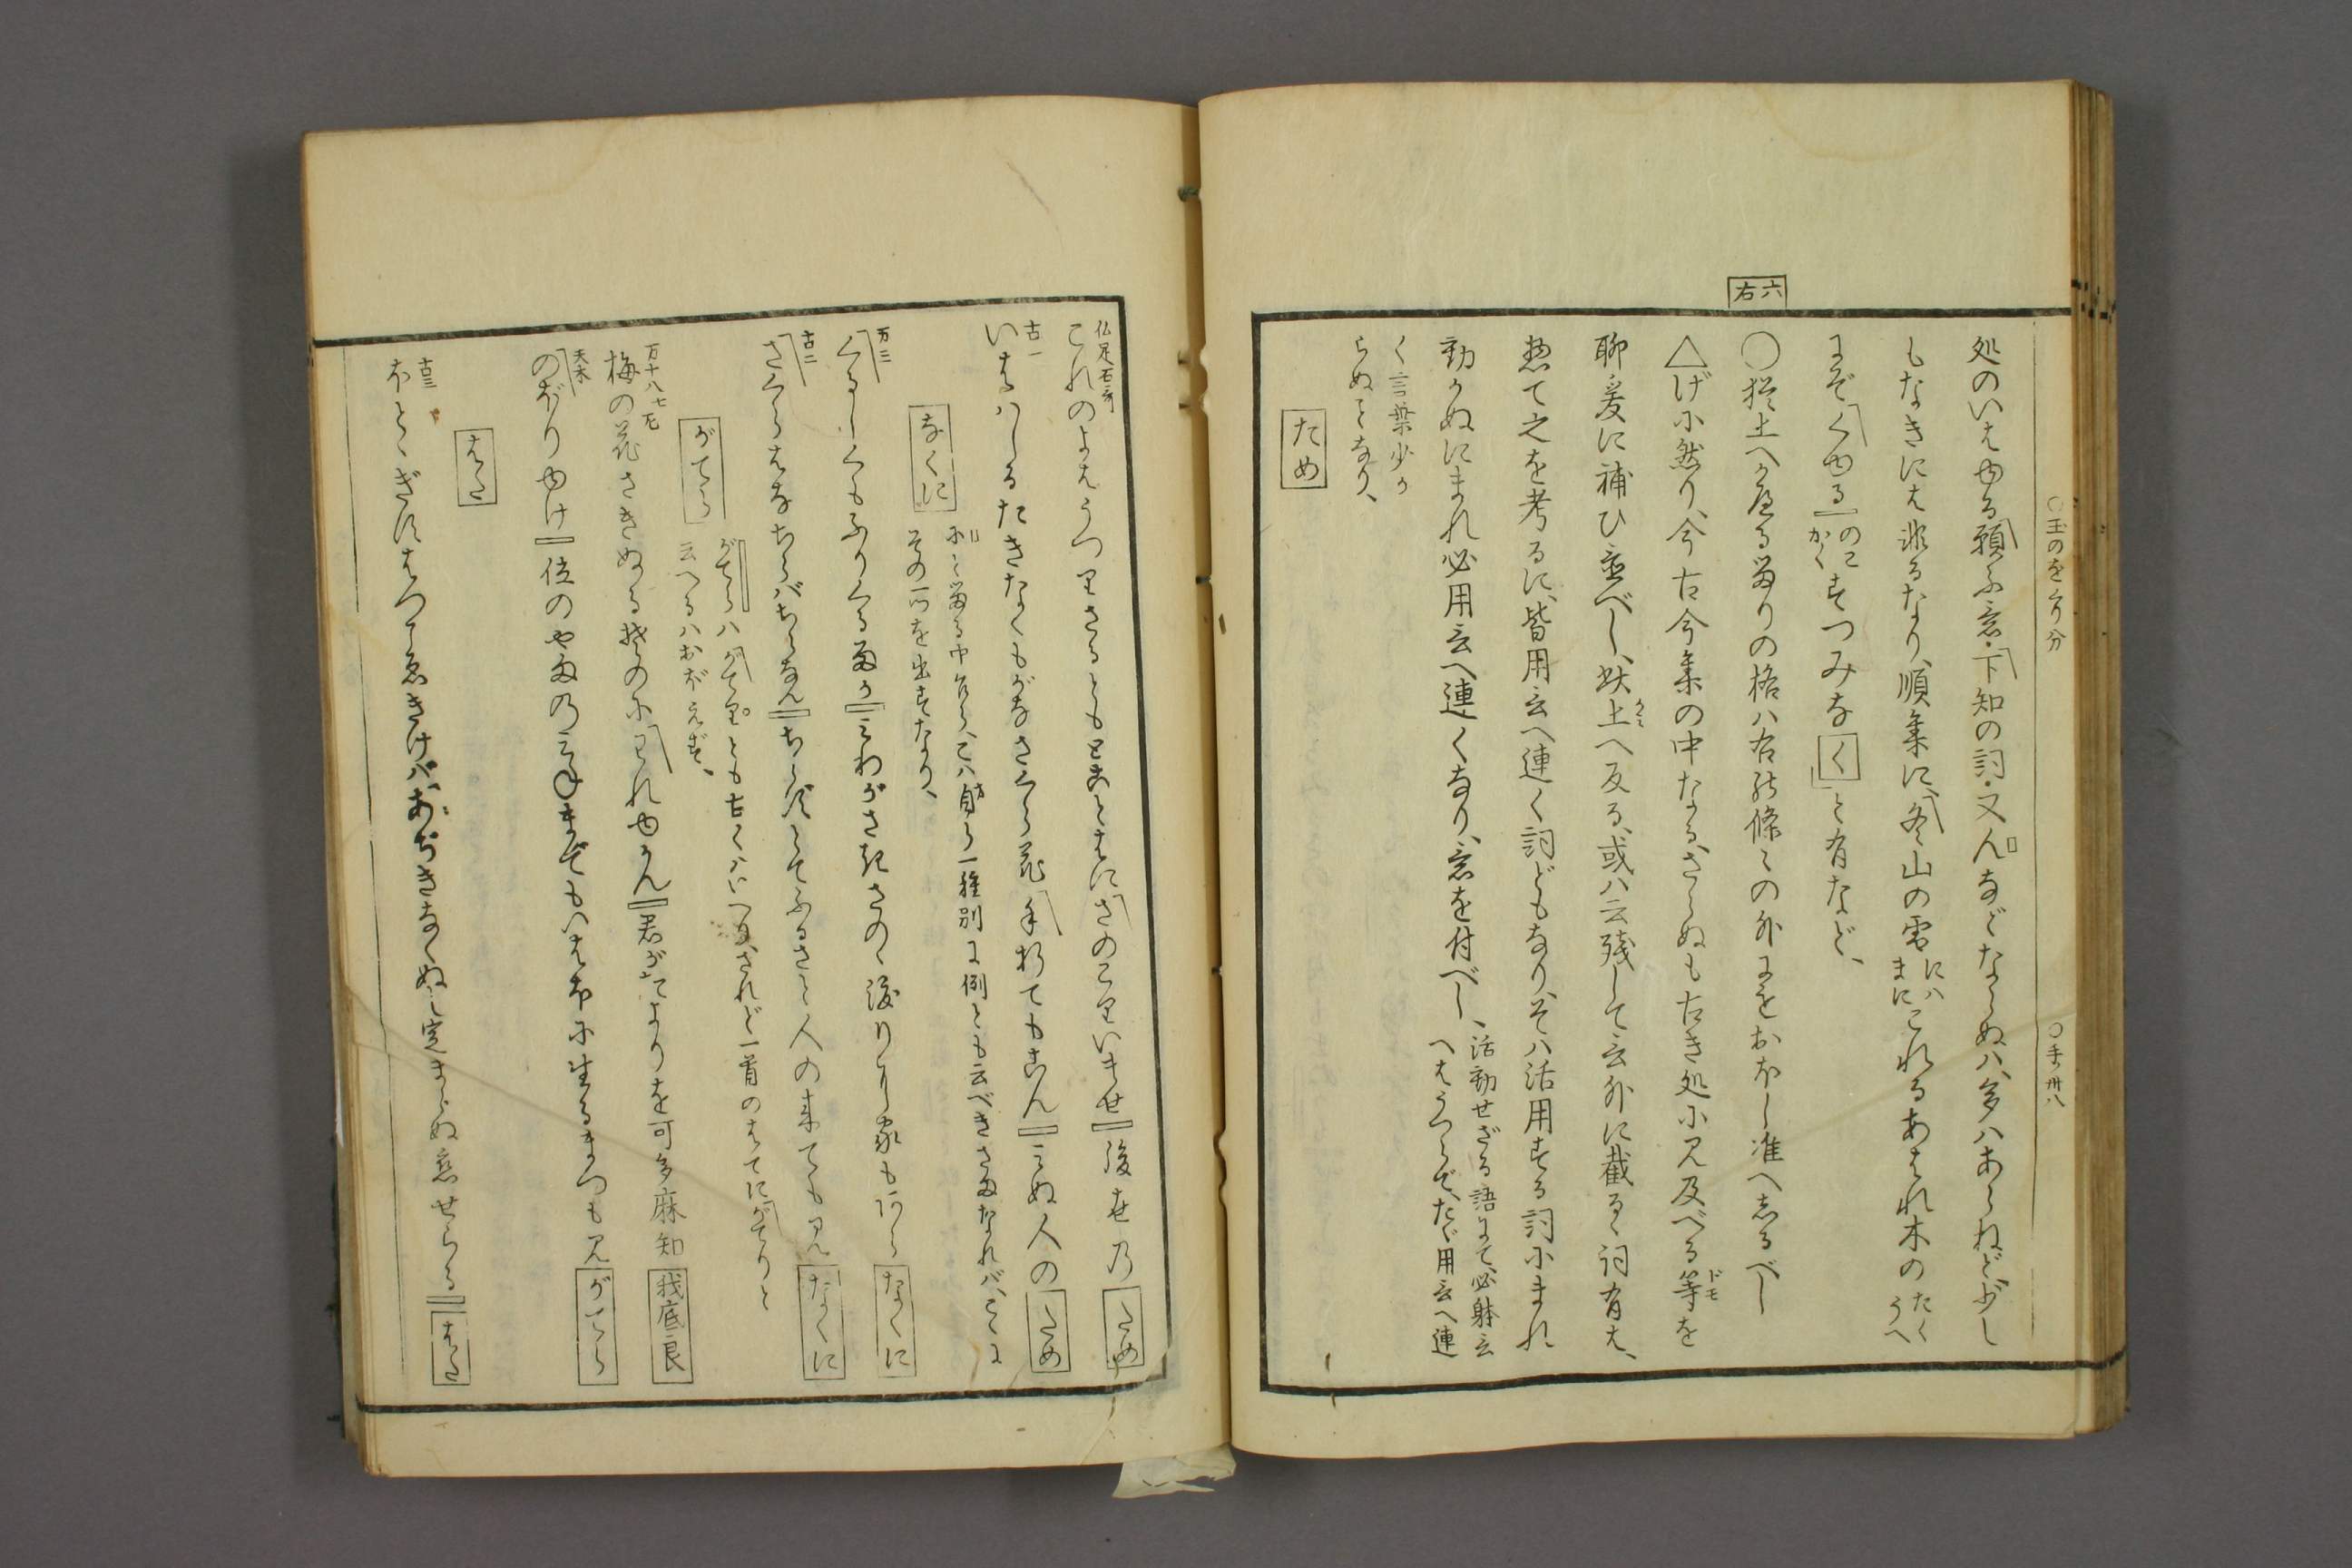 ○玉のをくり分　○手卅八
処のいはゆる願ふ意・下知の詞・又んなどならぬハ、多ハあらねど、少し
もなきにハ非るなり、順集に、冬山の雪にハまにこれるあはれ木のたくうへ
まぞくゆるのこかくすつみなくと有など、
○後土へかへる留りの格ハ右能條々の外にをおほし准へしるべし
六右
△げに然り、今古今集の中なる、さらぬも古き処に見及べる等ドモを
聊爰に補ひ並べし、然上へ反る、或ハ云残して言外に截るゝ詞有は、
惣て之を考るに、皆用言へ連く詞どもなり、そハ活用する詞にまれ
動かぬにまれ必用言へ連くなり、意を付べし、活動せざる語にて、必躰言
へはうつらで、たゞ用言へ連
く言葉少か
らぬことなり、
ため
仏足石哥
これのよはうつりさるともとことはにさのこりいませ後世のため
古一
いしはしるたきなくもがなさくら花手折てもこんみぬ人のため
なくに
にと留る中ながら、こハ自ら一種別に例とも云べきさまなれバ、こゝに
その一つを出すなり、
万三
くるしくもふりくる雨かみわがさきさのゝ渡りに家もあらなくに
古二
さくらはなちらバちらなんちらずとてふるさと人の来ても見なくに
がてら
がてらハがてりとも古くハいへり、されど一首のはてにがてりと
云へるハおぼえず、
万十八七左
梅の花さきぬるそのにわれゆかん君がてよりを可多麻知我底良
夫木
のぼりゆけ位のやまのみねまでもいはほに生るまつも見がてら
はた
古三
ほとゝぎすはつこゑきけバあぢきなくぬし定まらぬ恋せらるはた